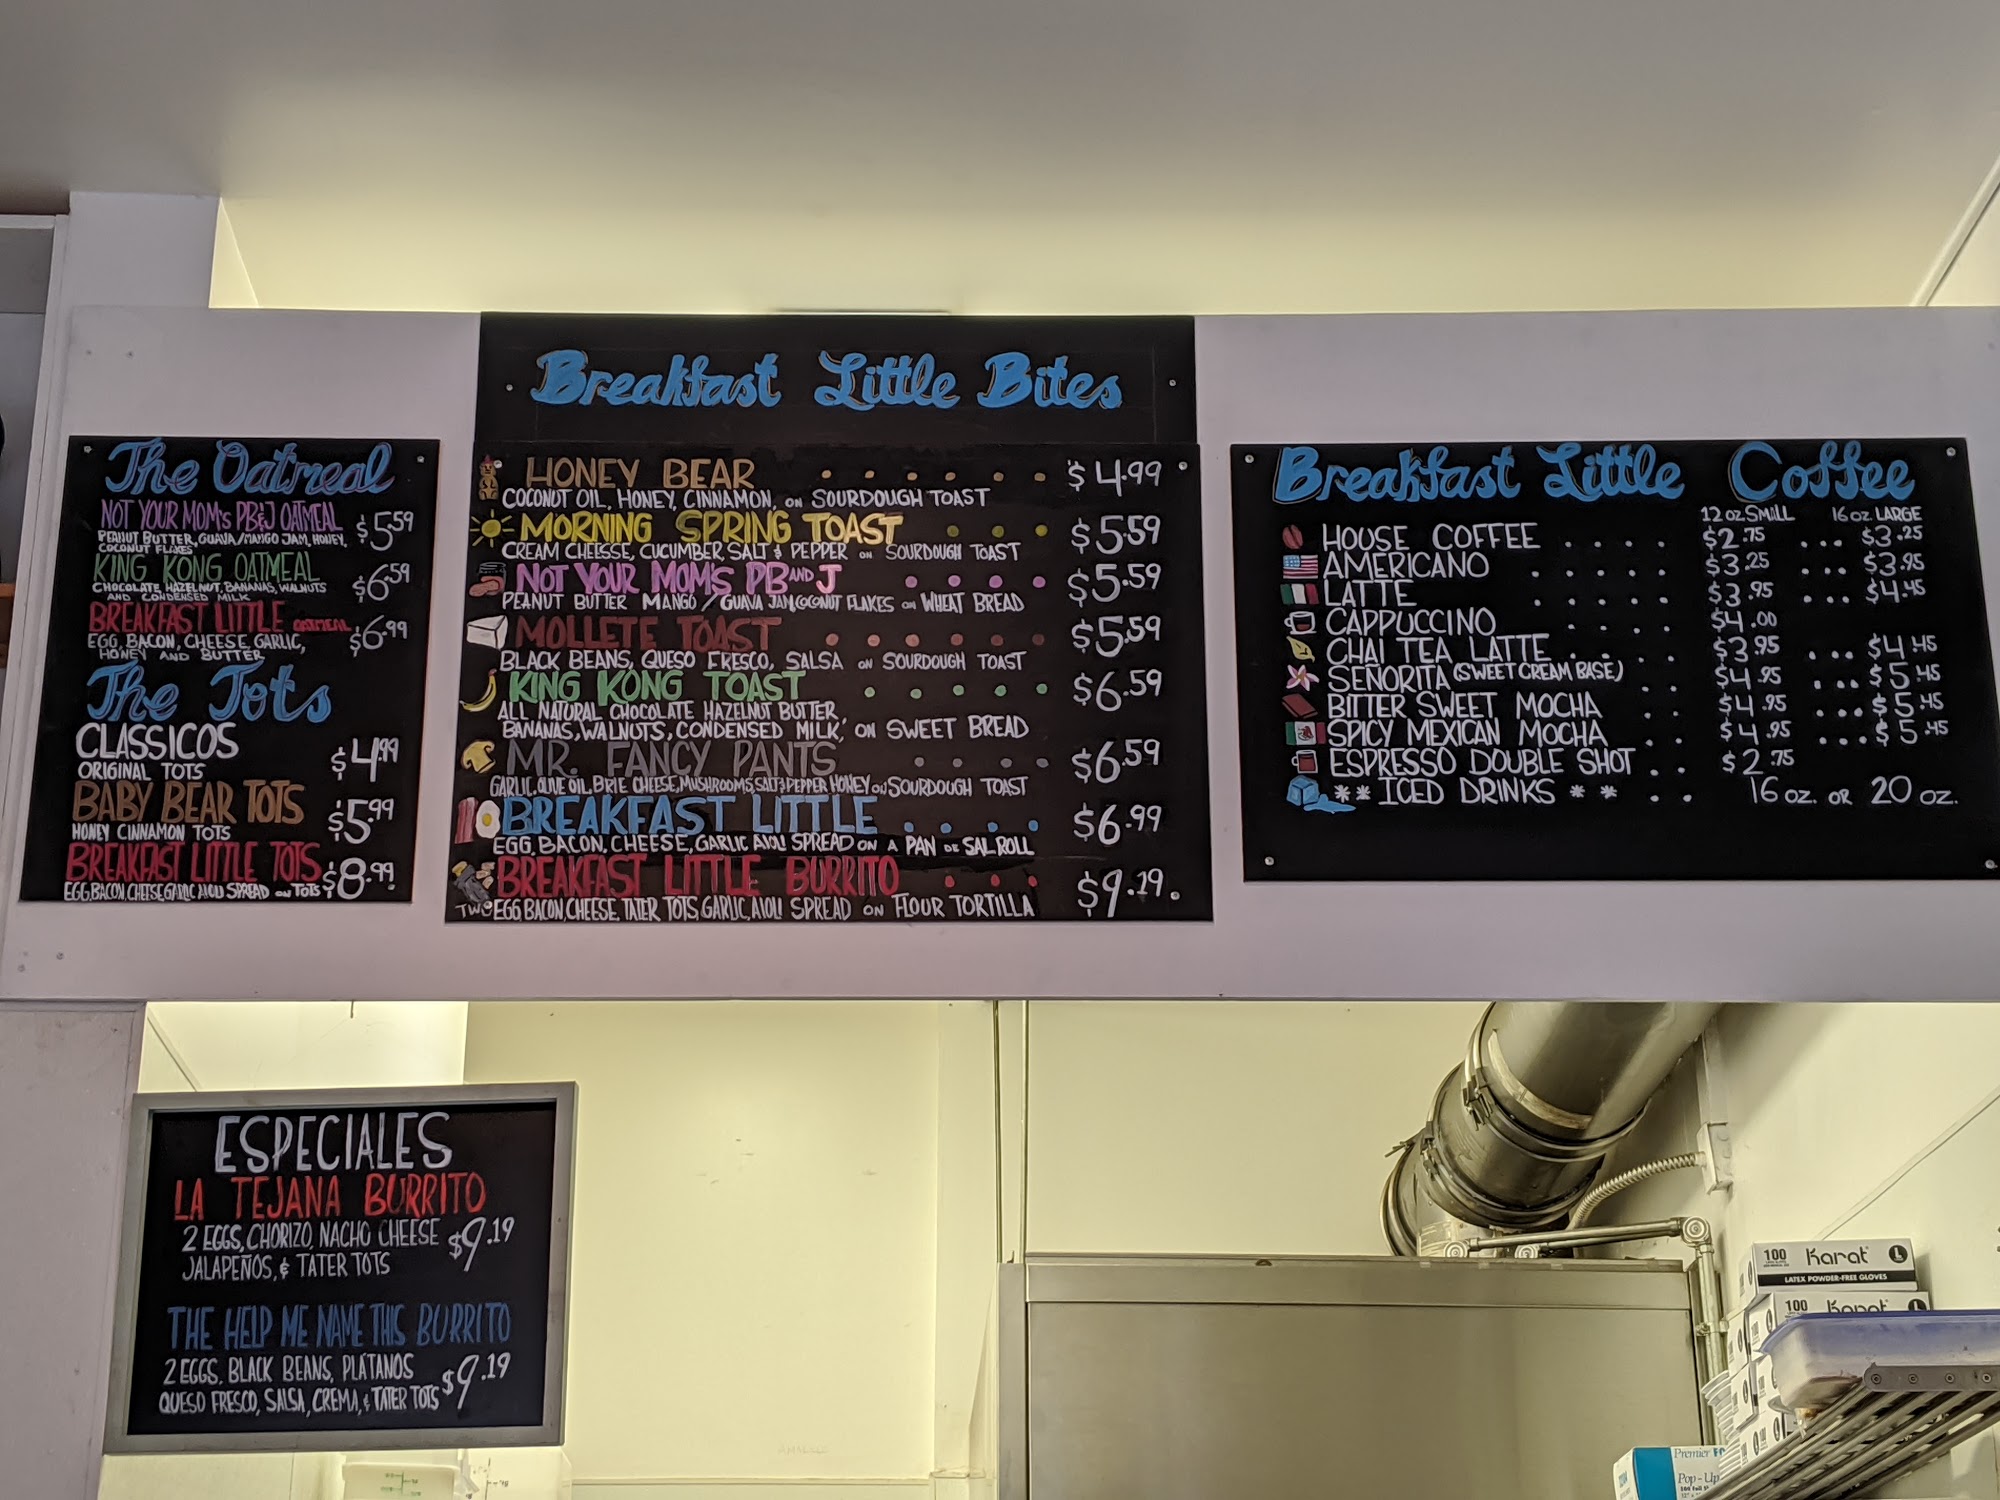 The Oatmeal
NOT YOUR MOM'S PB&J OATMEAL $5.59
PEANUT BUTTER, GUAVA/MANGO JAM, HONEY,
COCONUT FLAKES
KING KONG OATMEAL $6.59
CHOCOLATE, HAZELNUT, BANANAS, WALNUTS
AND CONDENSED MILK
BREAKFAST LITTLE OATMEAL $6.99
EGG, BACON, CHEESE, GARLIC,
HONEY AND BUTTER
The Tots
CLASSICOS $4.99
ORIGINAL TOTS
BABY BEAR TOTS $5.99
HONEY CINNAMON TOTS
BREAKFAST LITTLE TOTS $8.99
EGG, BACON, CHEESE, GARLIC AIOLI SPREAD ON TOTS
Breakfast Little Bites
HONEY BEAR . . . . . . $4.99
COCONUT OIL, HONEY, CINNAMON, ON SOURDOUGH TOAST
MORNING SPRING TOAST . . . $5.59
CREAM CHEESSE, CUCUMBER, SALT & PEPPER ON SOURDOUGH TOAST
NOT YOUR MOM'S PB AND J . . . . $5.59
PEANUT BUTTER MANGO / GUAVA JAM, COCONUT FLAKES ON WHEAT BREAD
MOLLETE TOAST . . . . . . $5.59
BLACK BEANS, QUESO FRESCO, SALSA ON SOURDOUGH TOAST
KING KONG TOAST . . . . . $6.59
ALL NATURAL CHOCOLATE HAZELNUT BUTTER,
BANANAS, WALNUTS, CONDENSED MILK, ON SWEET BREAD
MR. FANCY PANTS . . . . $6.59
GARLIC, OLIVE OIL, BRIE CHEESE, MUSHROOMS, SALT & PEPPER HONEY ON SOURDOUGH TOAST
BREAKFAST LITTLE . . . . $6.99
EGG, BACON, CHEESE, GARLIC AIOLI SPREAD ON A PAN DE SAL ROLL
BREAKFAST LITTLE BURRITO . . . $9.19
TWO EGG BACON, CHEESE, TATER TOTS, GARLIC, AIOLI SPREAD ON FLOUR TORTILLA
Breakfast Little Coffee
12 OZ. SMALL 16 OZ. LARGE
HOUSE COFFEE . . . . $2.75 ... $3.25
AMERICANO . . . . . $3.25 ... $3.95
LATTE . . . . . $3.95 ... $4.45
CAPPUCCINO . . . . $4.00
CHAI TEA LATTE . . . . $3.95 ... $4.45
SEÑORITA (SWEET CREAM BASE) . . $4.95 ... $5.45
BITTER SWEET MOCHA . . $4.95 ... $5.45
SPICY MEXICAN MOCHA . . $4.95 ... $5.45
ESPRESSO DOUBLE SHOT . . $2.75
** ICED DRINKS ** . . 16 OZ. OR 20 OZ.
ESPECIALES
LA TEJANA BURRITO
2 EGGS, CHORIZO, NACHO CHEESE $9.19
JALAPEÑOS, & TATER TOTS
THE HELP ME NAME THIS BURRITO
2 EGGS, BLACK BEANS, PLÁTANOS $9.19
QUESO FRESCO, SALSA, CREMA, & TATER TOTS
100 Karat L
LATEX POWDER-FREE GLOVES
100 Karat L
Premier
Pop-Up